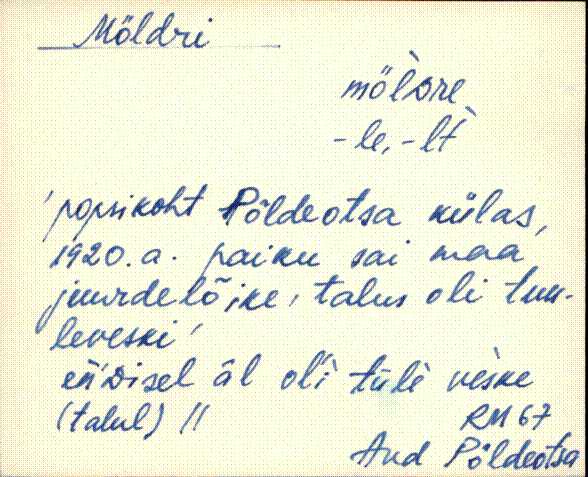 Möldri
mö̀lᴅre
-le, -lt̀
'popsikoht Põldeotsa külas,
1920. a. paiku sai maa
juurdelõike, talus oli tuu-
leveski'
en̆ᴅisel äl ol̀i tūl̀è vèske
(talul) !!
RM 67
Aud Põldeotsa